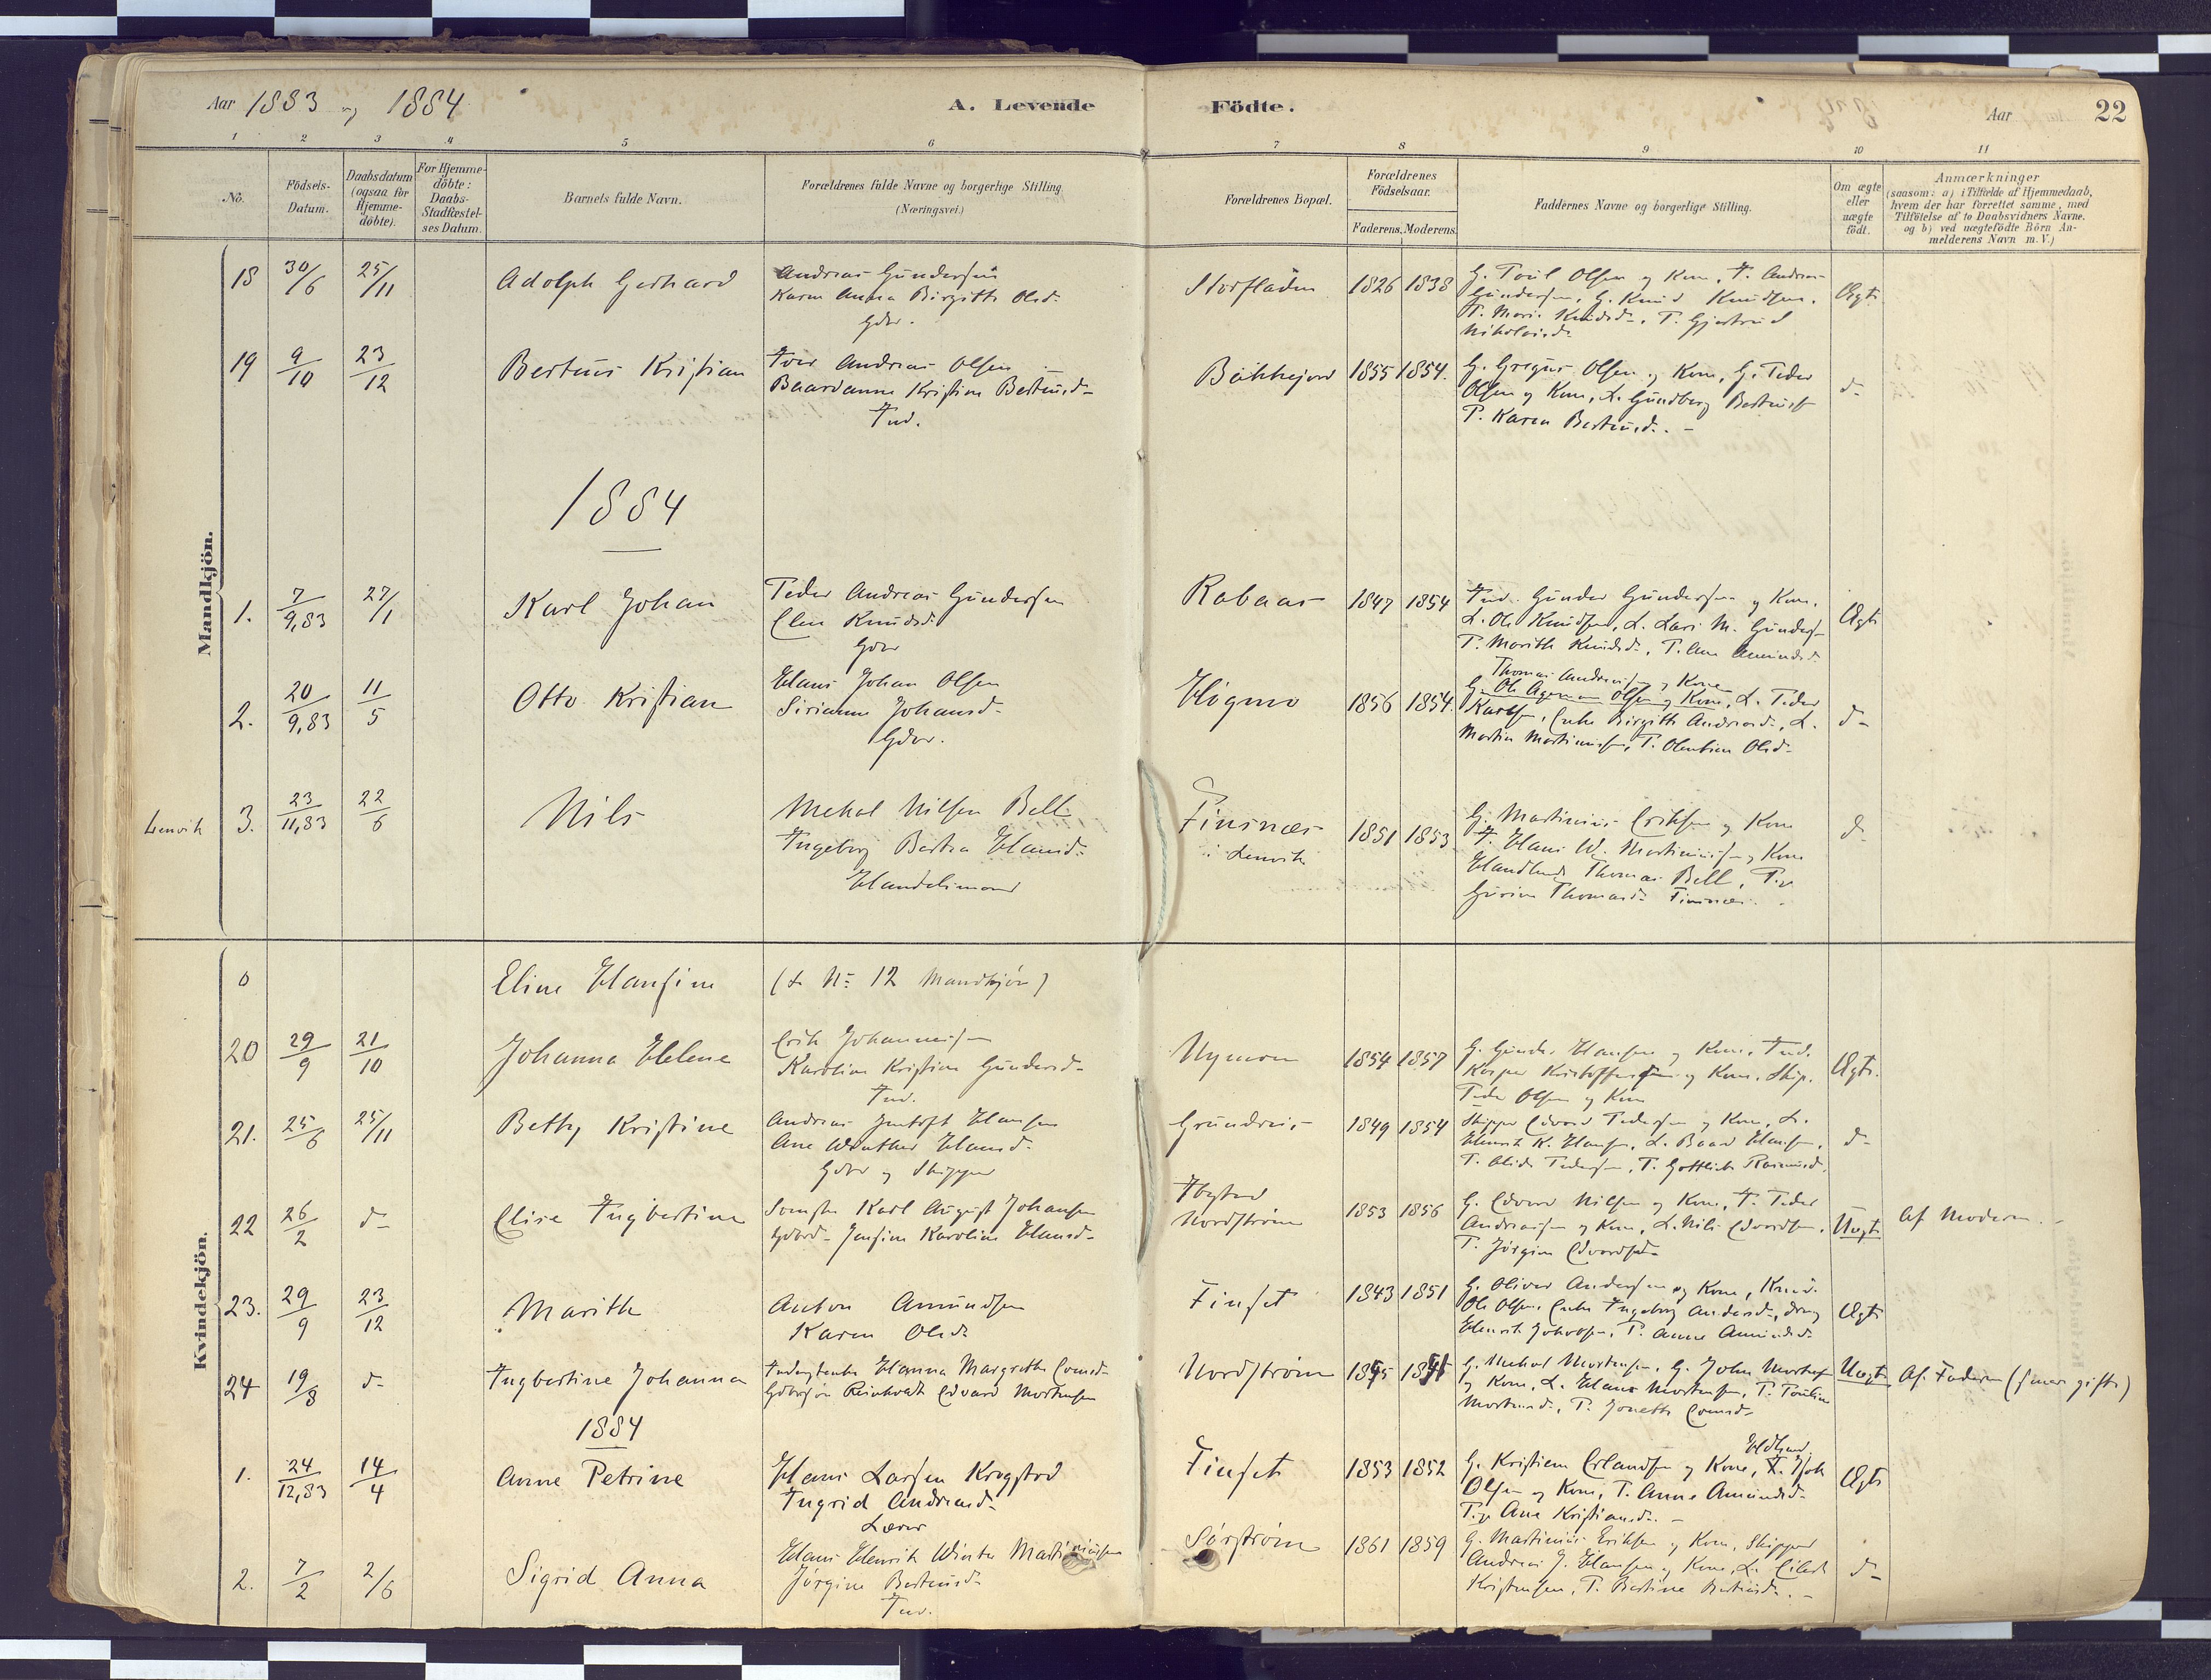 Aar 1883 og 1884
A. Levende Födte.
Aar
22
1 2 3 4 5 6 7 8 9 10 11
No.
Födsels-Datum.
Daabsdatum (ogsaa for Hjemme-döbte).
For Hjemme-döbte: Daabs-Stadfæstel-ses Datum.
Barnets fulde Navn.
Forældrenes fulde Navne og borgerlige Stilling.
(Næringsvei.)
Forældrenes Bopæl.
Forældrenes Födselsaar.
Faderens. Moderens.
Faddernes Navne og borgerlige Stilling.
Om ægte eller uægte födt.
Anmærkninger
(saasom: a) i Tilfælde af Hjemmedaab,
hvem der har forrettet samme, med
Tilföielse af to Daabsvidners Navne.
og b) ved uægtefödte Börn An-
melderens Navn m. V.)
Mandkjön.
18 30/6 25/11 Adolph Gerhard
Andreas Gundersen
Karen Anna Birgitte Olsd.
Gdbr.
Storfladen 1826 1838
G. Poul Olsen og Kone, F. Andreas
Gundersen, G. Knud Knudsen,
P. Mari Knudsd., P. Gjertrud
Nikolaisd.
Ægte
19 9/10 23/12 Bertius Kristian
Iver Andreas Olsen
Baardanna Kristine Bertiusd.
Ind.
Bakkejord 1855 1854.
G. Gregus Olsen og Kone, G. Peder
Olsen og Kone, L. Gundberg
P. Karen Bertiusd. -
d-
1884
1. 7/9,83 27/1 Karl Johan
Peder Andreas Gundersen
Elen Knudsd.
Gdbr
Rabaas 1847 1854
Ind. Gunder Gundersen og Kone,
L. Ole Knudsen, L. Lars M. Gunders
P. Marith Knudsd., P. Ane Amundsd.
Ægte
2. 20/9,83 11/5 Otto Kristian
Hans Johan Olsen
Sirianna Johansd.
Gdbr.
Högmo 1856 1854.
Thomas Andreassen og Kone
G. Ole Ageman Olsen og Kone, L. Peder
Karlsen, Enke Birgitte Andreasd., L.
Martin Martinussen, P. Olentine Olsd.
d-
Lenvik 3. 23/11,83 22/6 Nils
Mekal Nilsen Bell
Ingeborg Bertea Hansd.
Handelsmand
Finsnæs
i Lenvik
1851 1853
G. Martinus Eriksen og Kone
F. Hans W. Martinussen og Kone
Thomas Bell, Pige
Gurine Thomasd. Finsnæs.
d-
Kvindekjön.
0 Eline Hansine (se No 12 Mandkjön)
20 29/9 21/10 Johanna Helene
Erik Johannessen
Karoline Kristine Gundersd.
Ind.
Nymoen 1854 1857
G. Gunder Hansen og Kone, Ind.
Kasper Kristoffersen og Kone, Skip.
Peder Olsen og Kone
Ægte.
21. 25/6 25/11 Betty Kristine
Andreas Jentoft Hansen
Ane Winther Hansd.
Gdbr og Skipper
Grundreis 1849 1854
Skipper Edvard Pedersen og Kone, L.
Henrik K. Hansen, L. Baard Hansen,
P. Alida Pedersen, P. Rasmusd.
d-
22 26/2 d- Elise Ingbertine
Karl August Johansen
Jensine Karoline Hansd.
Ibestad
Nordström 1853 1856
G. Edvard Nilsen og Kone, F. Peder
Andreassen og Kone, L. Nils Edvardsen,
P. Jörgine Edvardsd.
Uægte Af Moderen. -
23. 29/9 23/12 Marith
Anton Amundsen
Karen Olsd.
Finset 1843 1851
G. Oliver Andersen og Kone, Knud
Ole Olsen, Enke Ingeborg Andersd., dreng
Henrik, P. Anne Amundsd.
Ægte
24 19/8 d- Ingbertine Johanna
Hanna Margrethe
Gdbrsön Reinholdt Edvard Mortensen
Nordström
G. Mekal Mortensen, G. John Mortens
og Kone, L. Hans Mortensen, P. Pauline
Mortensd., P. Jonette
Uægte Af Faderen (Ener gifte)
1884
1. 24/12,83 14/4 Anne Petrine
Hans Larsen Krogstad
Ingrid Andreasd.
Lærer
Finset 1853 1852
G. Kristian Erlandsen og Kone, F. Isak
Olsen og Kone, P. Anne Amundsd.
Pige Ane Kristiansd. -
Ægte
2. 7/2 2/6 Sigrid Anna
Hans Henrik Winter Martinussen
Jörgine Bertiusd.
Ind.
Sörström 1861 1859
G. Martinus Eriksen og Kone, Skipper
Andreas J. Hansen og Kone, L. Eilert
Kristensen, P. Bertine Bertiusd. -
d-